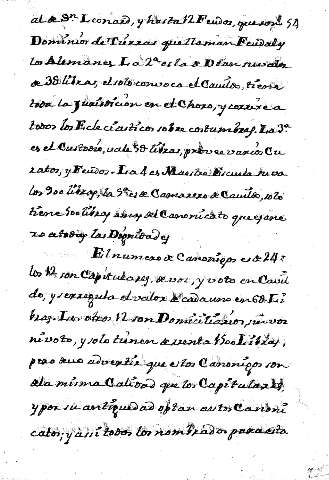 al de Sn. Leonard, y hasta 12 Feudos, que son 54
Dominios de Tierras que llaman Feudal y
los Alemanes. La 2ª es la de Dean su valor
de 3@ libras, el solo convoca el Cavildo, tiene
toda la Jurisdicion en el Choro, y corrije a
todos los Eclesiasticos sobre costumbres. La 3ª
es el Custodio, vale 3@ libras, provee varios Cu
ratos, y Feudos. La 4 es Maestre Escuela su va
lor 900 libras, la 5ª es de Camarero de Cavildo, solo
tiene 500 libras del Canonicato que es ane
xo a todas las Dignidades
El numero de Canonigos es de 24
los 12 son Capitulares, de voz, y voto en Cavil
do, y se regula el valor de cada uno en 6@ Li
bras. Los otros 12 son Domiciliarios, sin voz
ni voto, y solo tienen de renta 1500 Libras;
pero devo advertir que estos Canonigos son
de la misma Calidad que los Capitulares,
y por su antiguedad optan a otro Canoni
cato; y assi todos los nombrados para esta